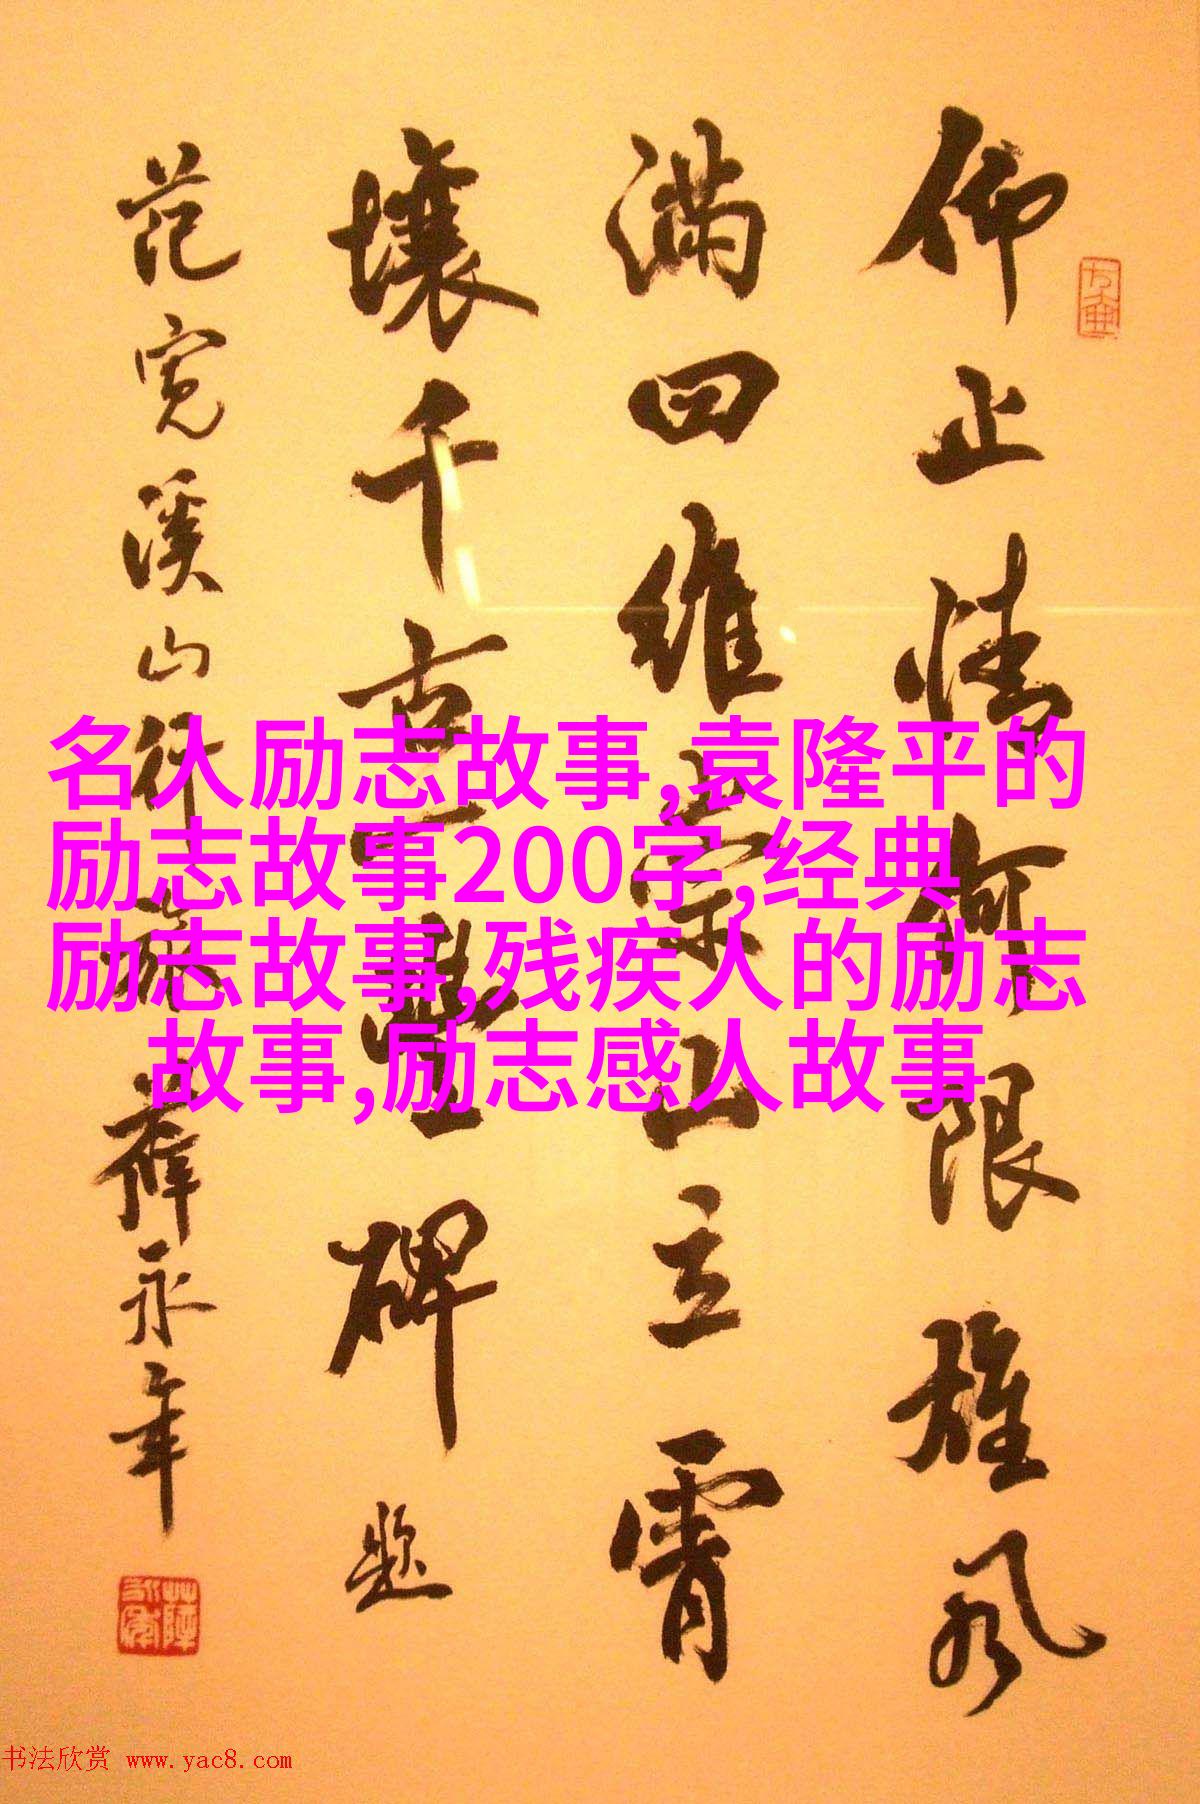 仰止情何限雄风
满四维崇山立霄
壤千古一豐碑 题
范宽溪山行旅 薛永年
名人励志故事,袁隆平的
励志故事200字,经典
励志故事,残疾人的励志
故事,励志感人故事
书法欣赏 www.yac8.com